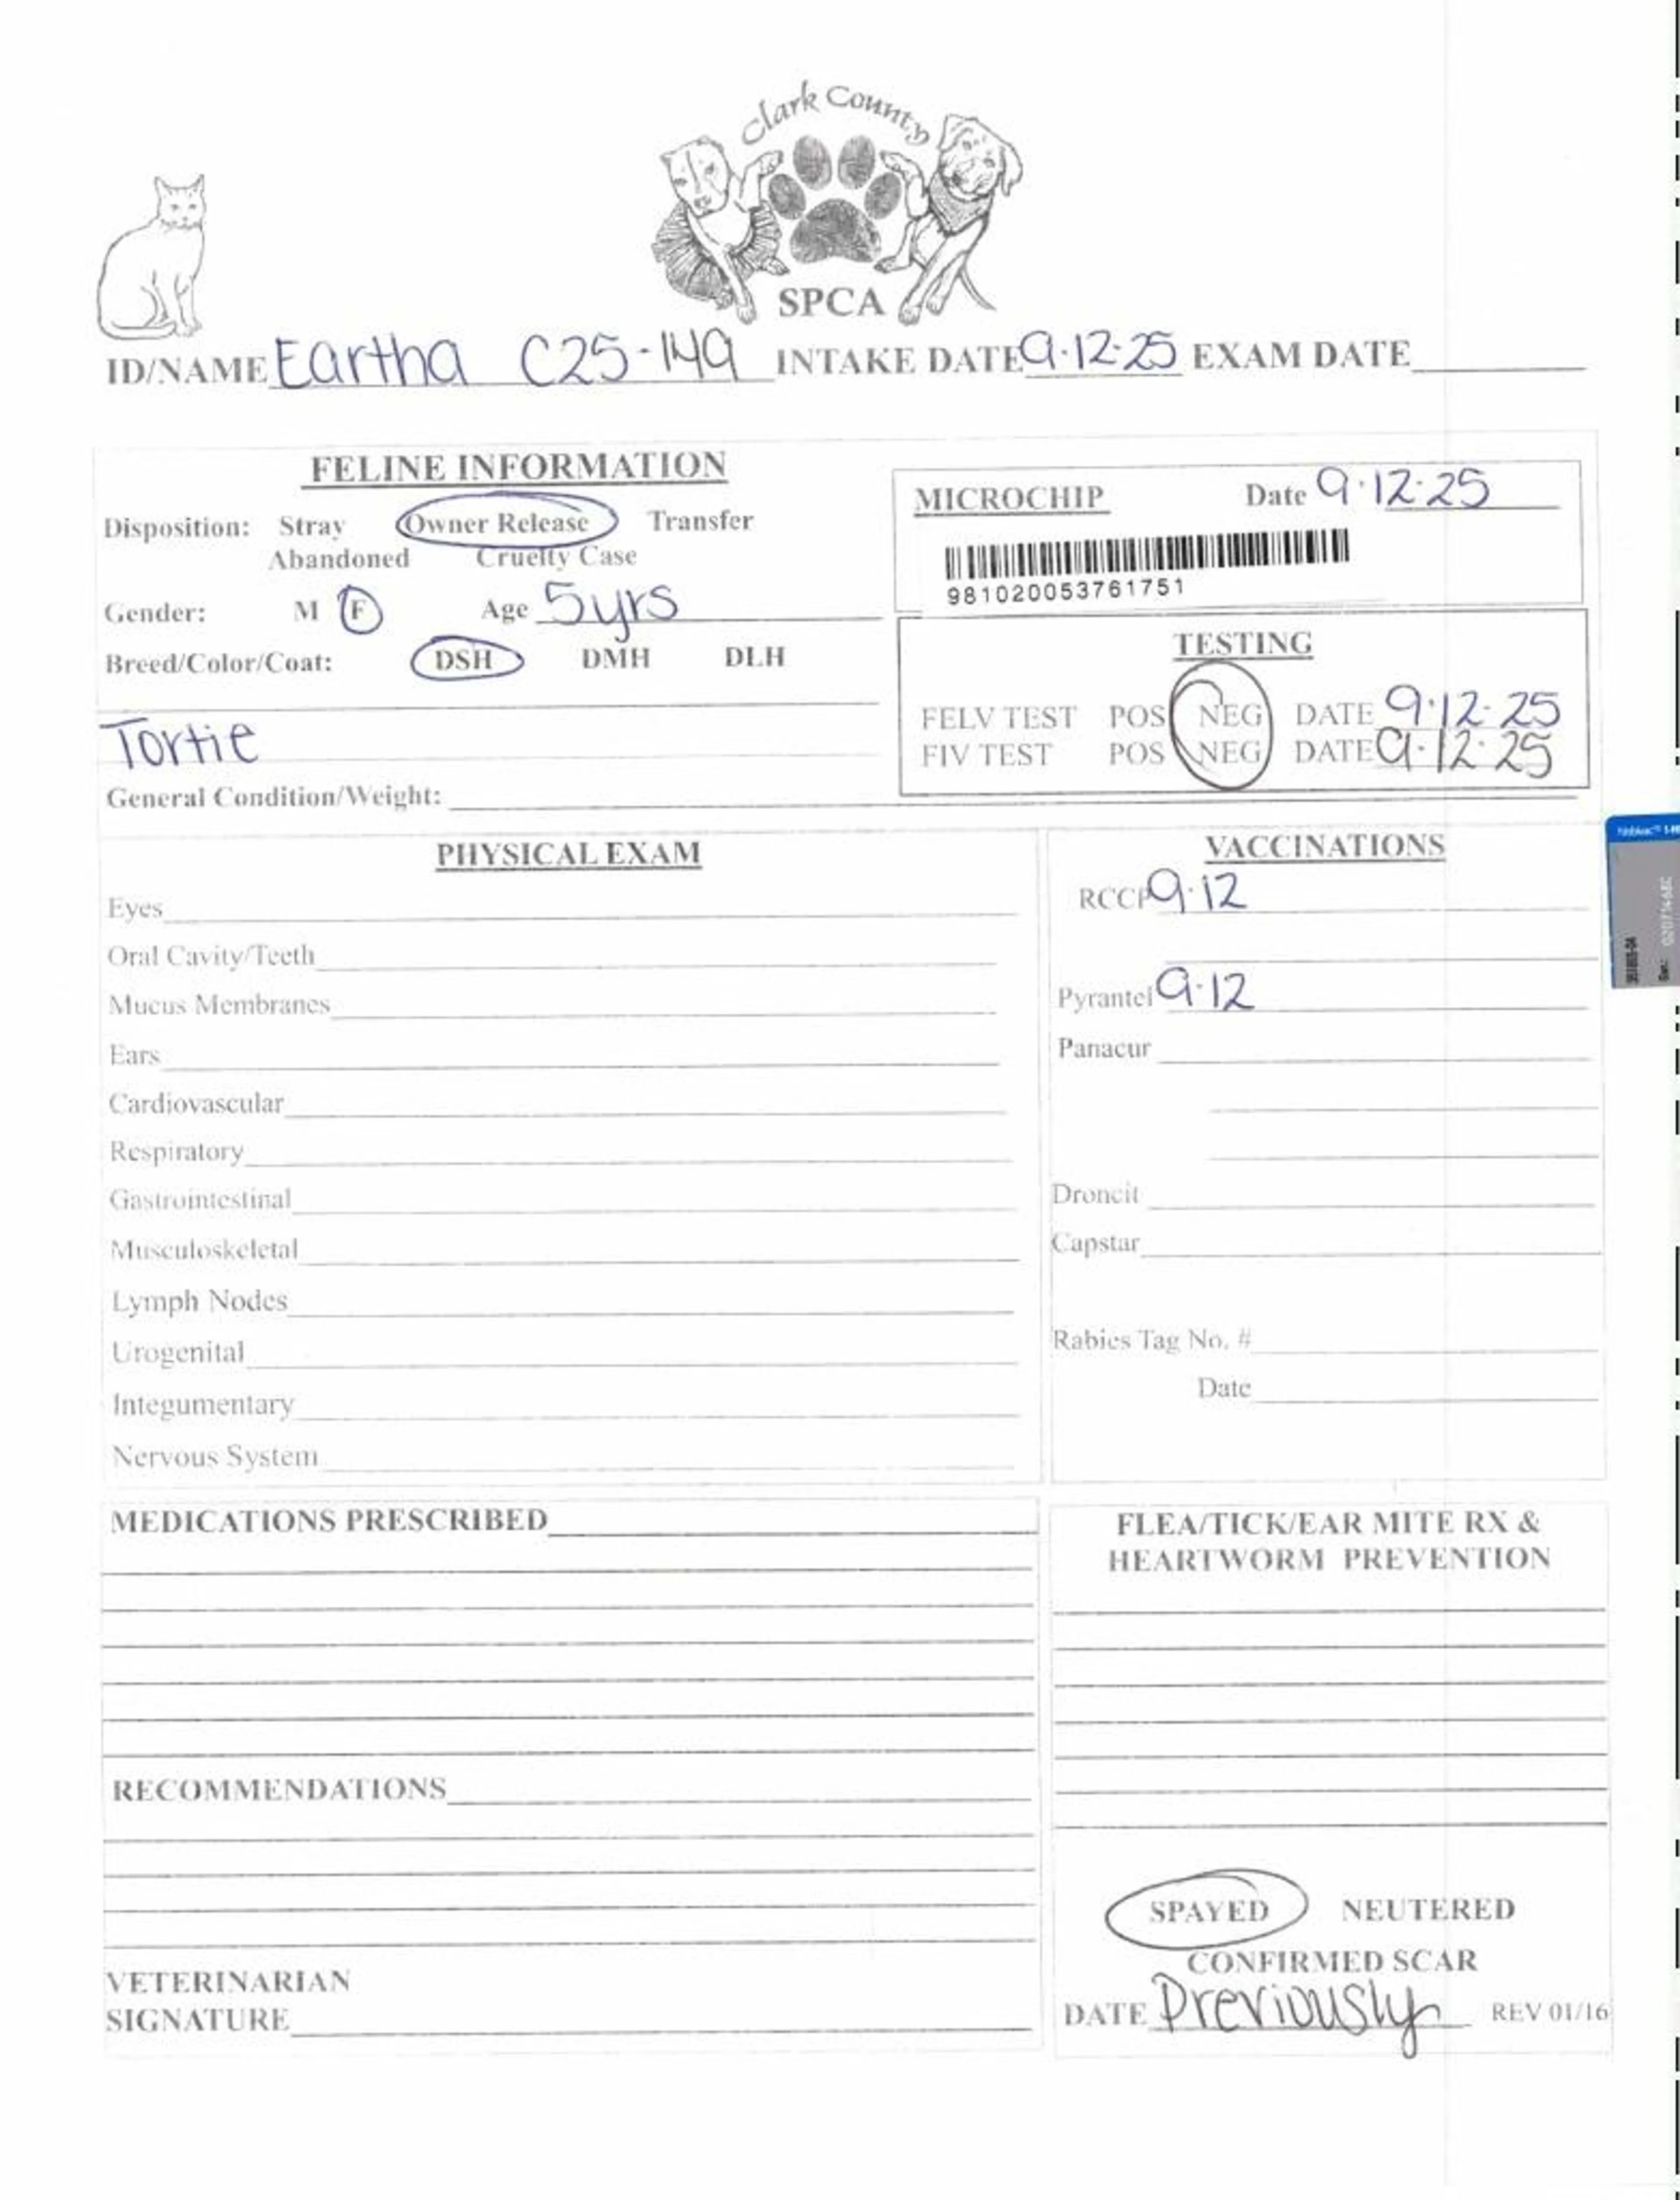 Clark County
SPCA
ID/NAME Eartha C25-149 INTAKE DATE 9.12.25 EXAM DATE
FELINE INFORMATION
Disposition: Stray Owner Release Transfer
Abandoned Cruelty Case
Gender: M F Age 5yrs
Breed/Color/Coat: DSH DMH DLH
Tortie
General Condition/Weight:
MICROCHIP Date 9.12.25
981020053761751
TESTING
FELV TEST POS NEG DATE 9.12.25
FIV TEST POS NEG DATE 9.12.25
PHYSICAL EXAM
Eyes
Oral Cavity/Teeth
Mucus Membranes
Ears
Cardiovascular
Respiratory
Gastrointestinal
Musculoskeletal
Lymph Nodes
Urogenital
Integumentary
Nervous System
VACCINATIONS
RCCP 9.12
Pyrantel 9.12
Panacur
Droncit
Capstar
Rabies Tag No. #
Date
MEDICATIONS PRESCRIBED
RECOMMENDATIONS
VETERINARIAN
SIGNATURE
FLEA/TICK/EAR MITE RX &
HEARTWORM PREVENTION
SPAYED NEUTERED
CONFIRMED SCAR
DATE Previously REV 01/16